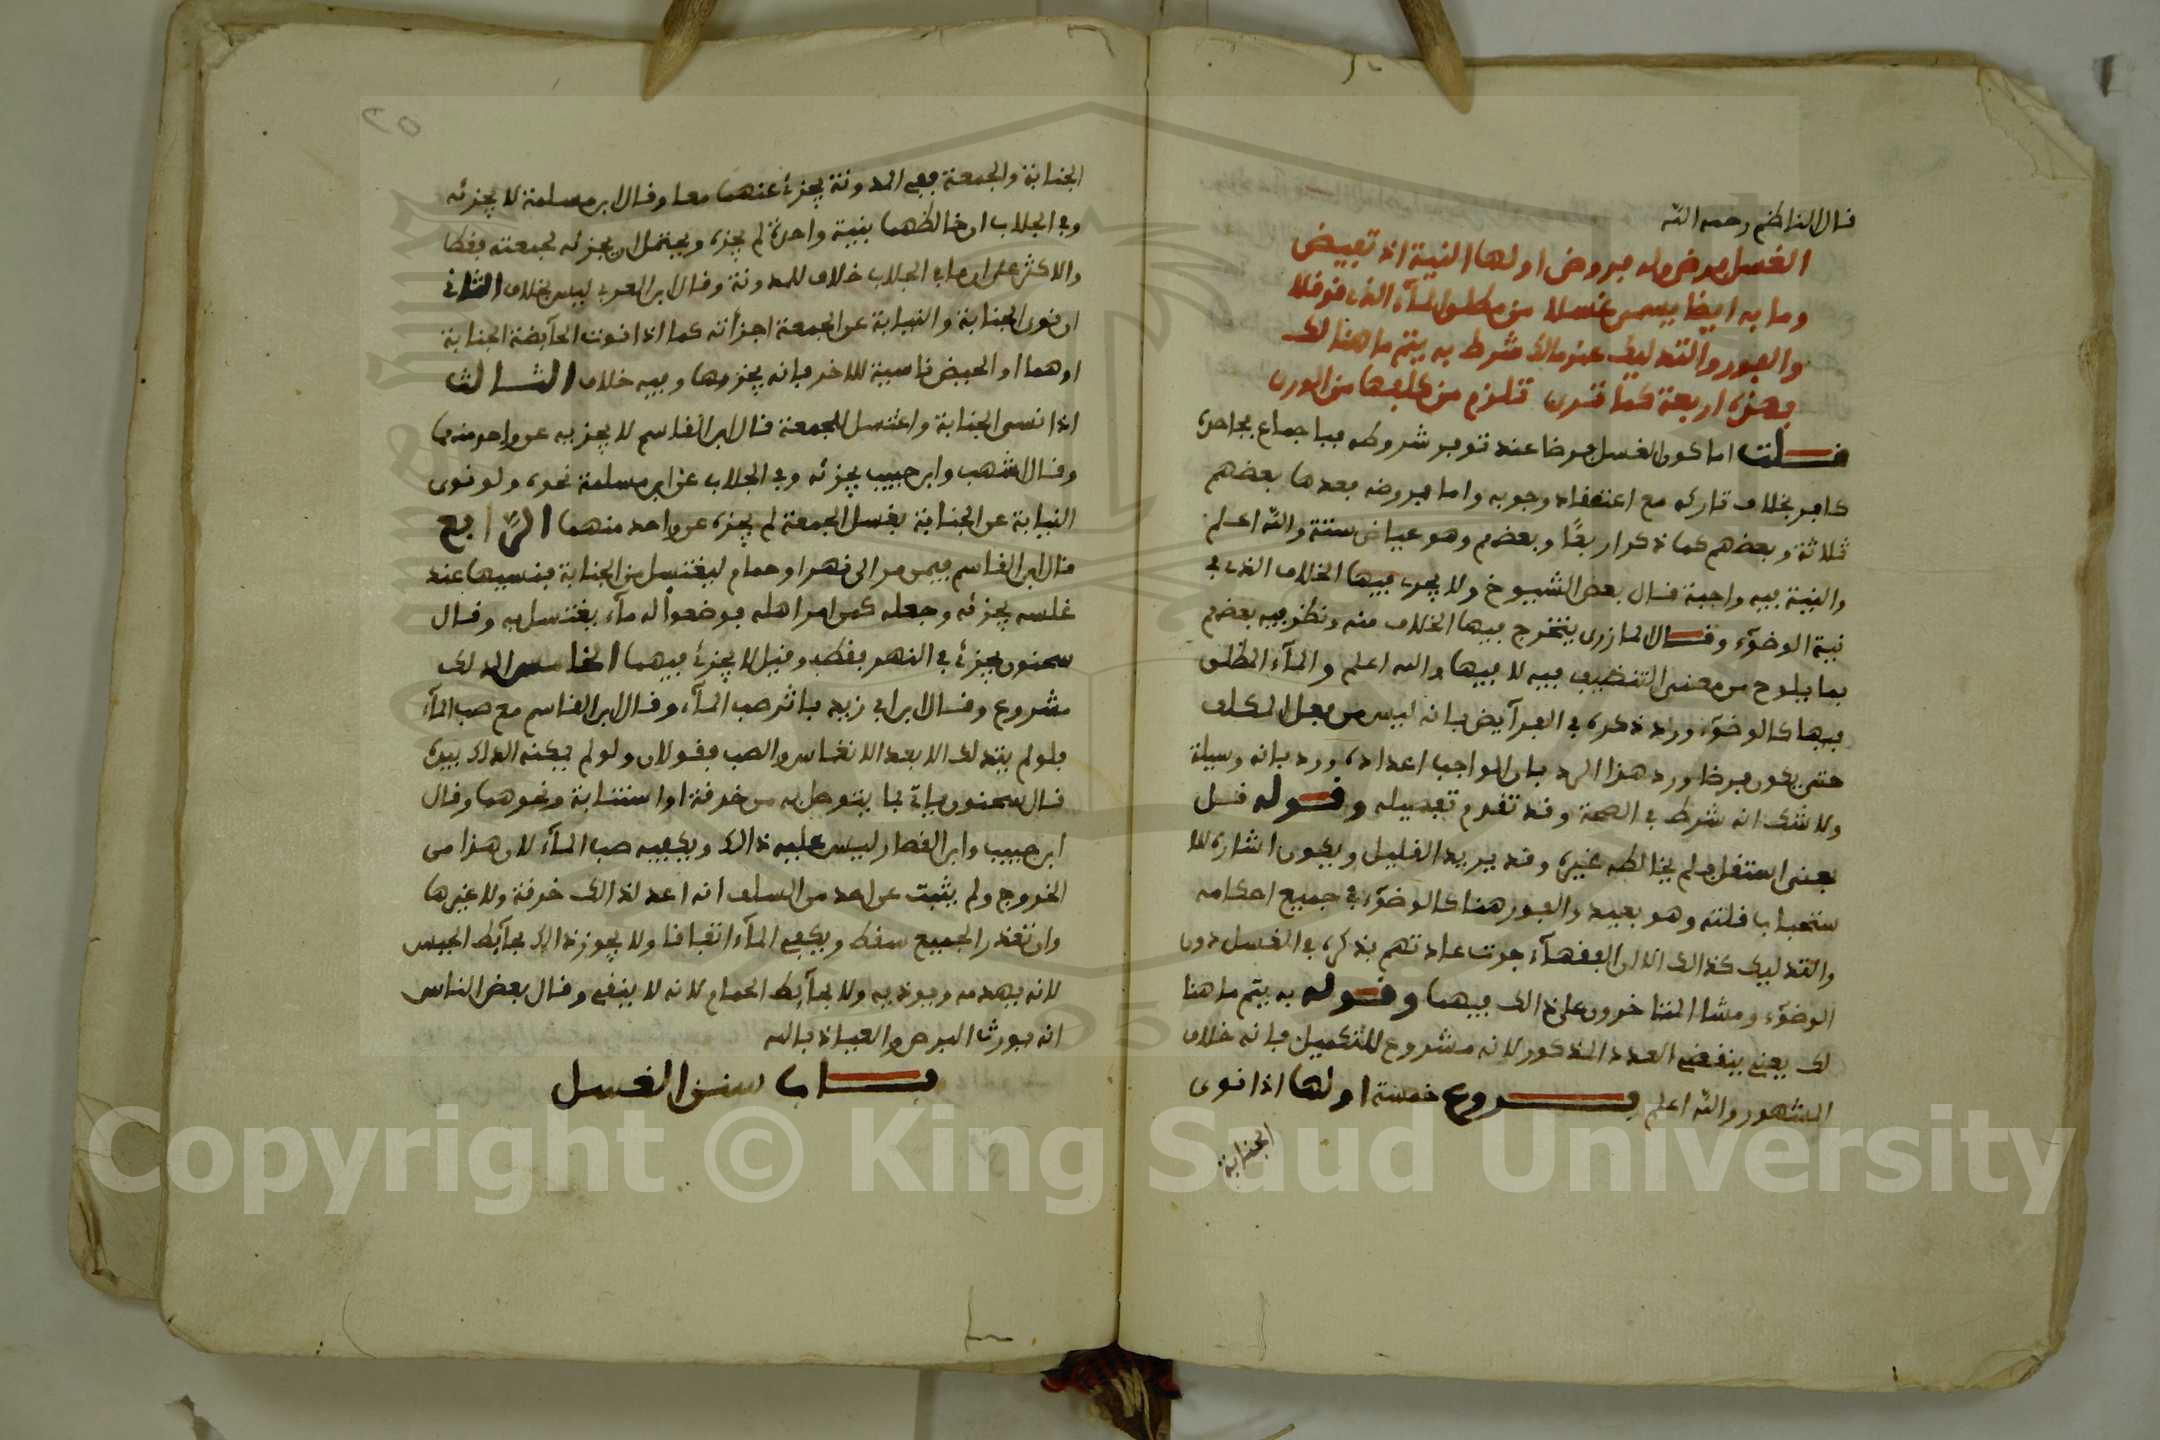 قال الناظم رحمه الله
الغسل فرض وله فروض اولها النية اذ تفيض
وما به ايضا يسمى غسلا من مطلق الماء الذي قد قلا
والفور والتدليك عند مالك شرط به يتم ما هنالك
فهذه اربعة كما ترى تلزم من كلفها من الورى
قلت اما كون الغسل فرضا عند توفر شروطه فباجماع فجاحده
كافر بخلاف تاركه مع اعتقاد وجوبه واما فروضه فعدها بعضهم
ثلاثة وبعضهم كما ذكر اربعًا وبعضهم وهو عياض ستة والله اعلم
والنية فيه واجبة قال بعض الشيوخ ولا يجري فيها الخلاف الذي في
نية الوضوء وقال المازري يتخرج فيها الخلاف منه ونظر فيه بعضهم
بما يلوح من معنى التنظيف فيه لا فيها والله اعلم والماء المطلق
فيها كالوضوء ورد ذكره في الفرآيض بانه ليس من فعل المكلف
حتى يكون فرضا ورد هذا الرد بان الواجب اعداده ورد بانه وسيلة
ولا شك انه شرط في الصحة وقد تقدم تفصيله وقوله قل
يعنى استقل ولم يخالطه غيره وقد يريد القليل ويكون اشارة للا
ستحباب قلته وهو بعيد والفور هنا كالوضوء في جميع احكامه
والتدليك كذالك الا ان الفقهآء جرت عادتهم بذكره في الغسل دون
الوضوء ومشا المتاخرون على ذالك فيهما وقوله به يتم ما هنا
لك يعني ينقضي العدد المذكور لانه مشروع للتكميل فانه خلاف
المشهور والله اعلم فروع خمسة اولها اذا نوى
الجنابة
الجنابة والجمعة ففي المدونة يجزئ عنهما معا وقال ابن مسلمة لا يجزئه
وفي الجلاب ان خالطهما بنية واحدة لم يجزه ويحتمل ان يجزئه لجمعته فقط
والاكثر على ان ما في الجلاب خلاف للمدونة وقال ابن العربي ليس بخلاف الثاني
ان نوى الجنابة والنيابة عن الجمعة اجزأته كما اذا نوت الحآيضة الجنابة
اوهما او الحيض ناسية للاخر فانه يجزيها وفيه خلاف الثالث
اذا نسى الجنابة واغتسل للجمعة قال ابن القاسم لا يجزيه عن واحد منهما
وقال اشهب وابن حبيب يجزئه وفي الجلاب عن ابن مسلمة نحوه ولو نوى
النيابة عن الجنابة بغسل الجمعة لم يجزه عن واحد منهما الرابع
قال ابن القاسم فيمن مر الى نهر او حمام ليغتسل من الجنابة فنسيها عند
غلسه يجزئه وجعله كمن امر اهله فوضعوا له مآء يغتسل به وقال
سحنون يجزئ في النهر فقط وقيل لا يجزئ فيهما الخامس الدلك
مشروع وقال ابن ابي زيد باثر صب المآء وقال ابن القاسم مع صب المآء
فلو لم يتدلك الا بعد الانغماس والصب فقولان ولو لم يمكنه الدلك بيده
قال سحنون ياتي بما يتوصل به من خرفة او استنابة ونحوهما وقال
ابن حبيب وابن القصار ليس عليه ذالك ويكفيه صب المآء لان هذا من
الخروج ولم يثبت عن احد من السلف انه اعد لذالك خرفة ولا غيرها
وان تعذر الجميع سقط ويكفي المآء اتفاقا ولا يجوز ذالك بحآيط الحبس
لانه يهدمه ويوذيه ولا بحآيط الحمام لانه لا ينقي وقال بعض الناس
انه يورث البرص والعياذ بالله
باب سنن الغسل